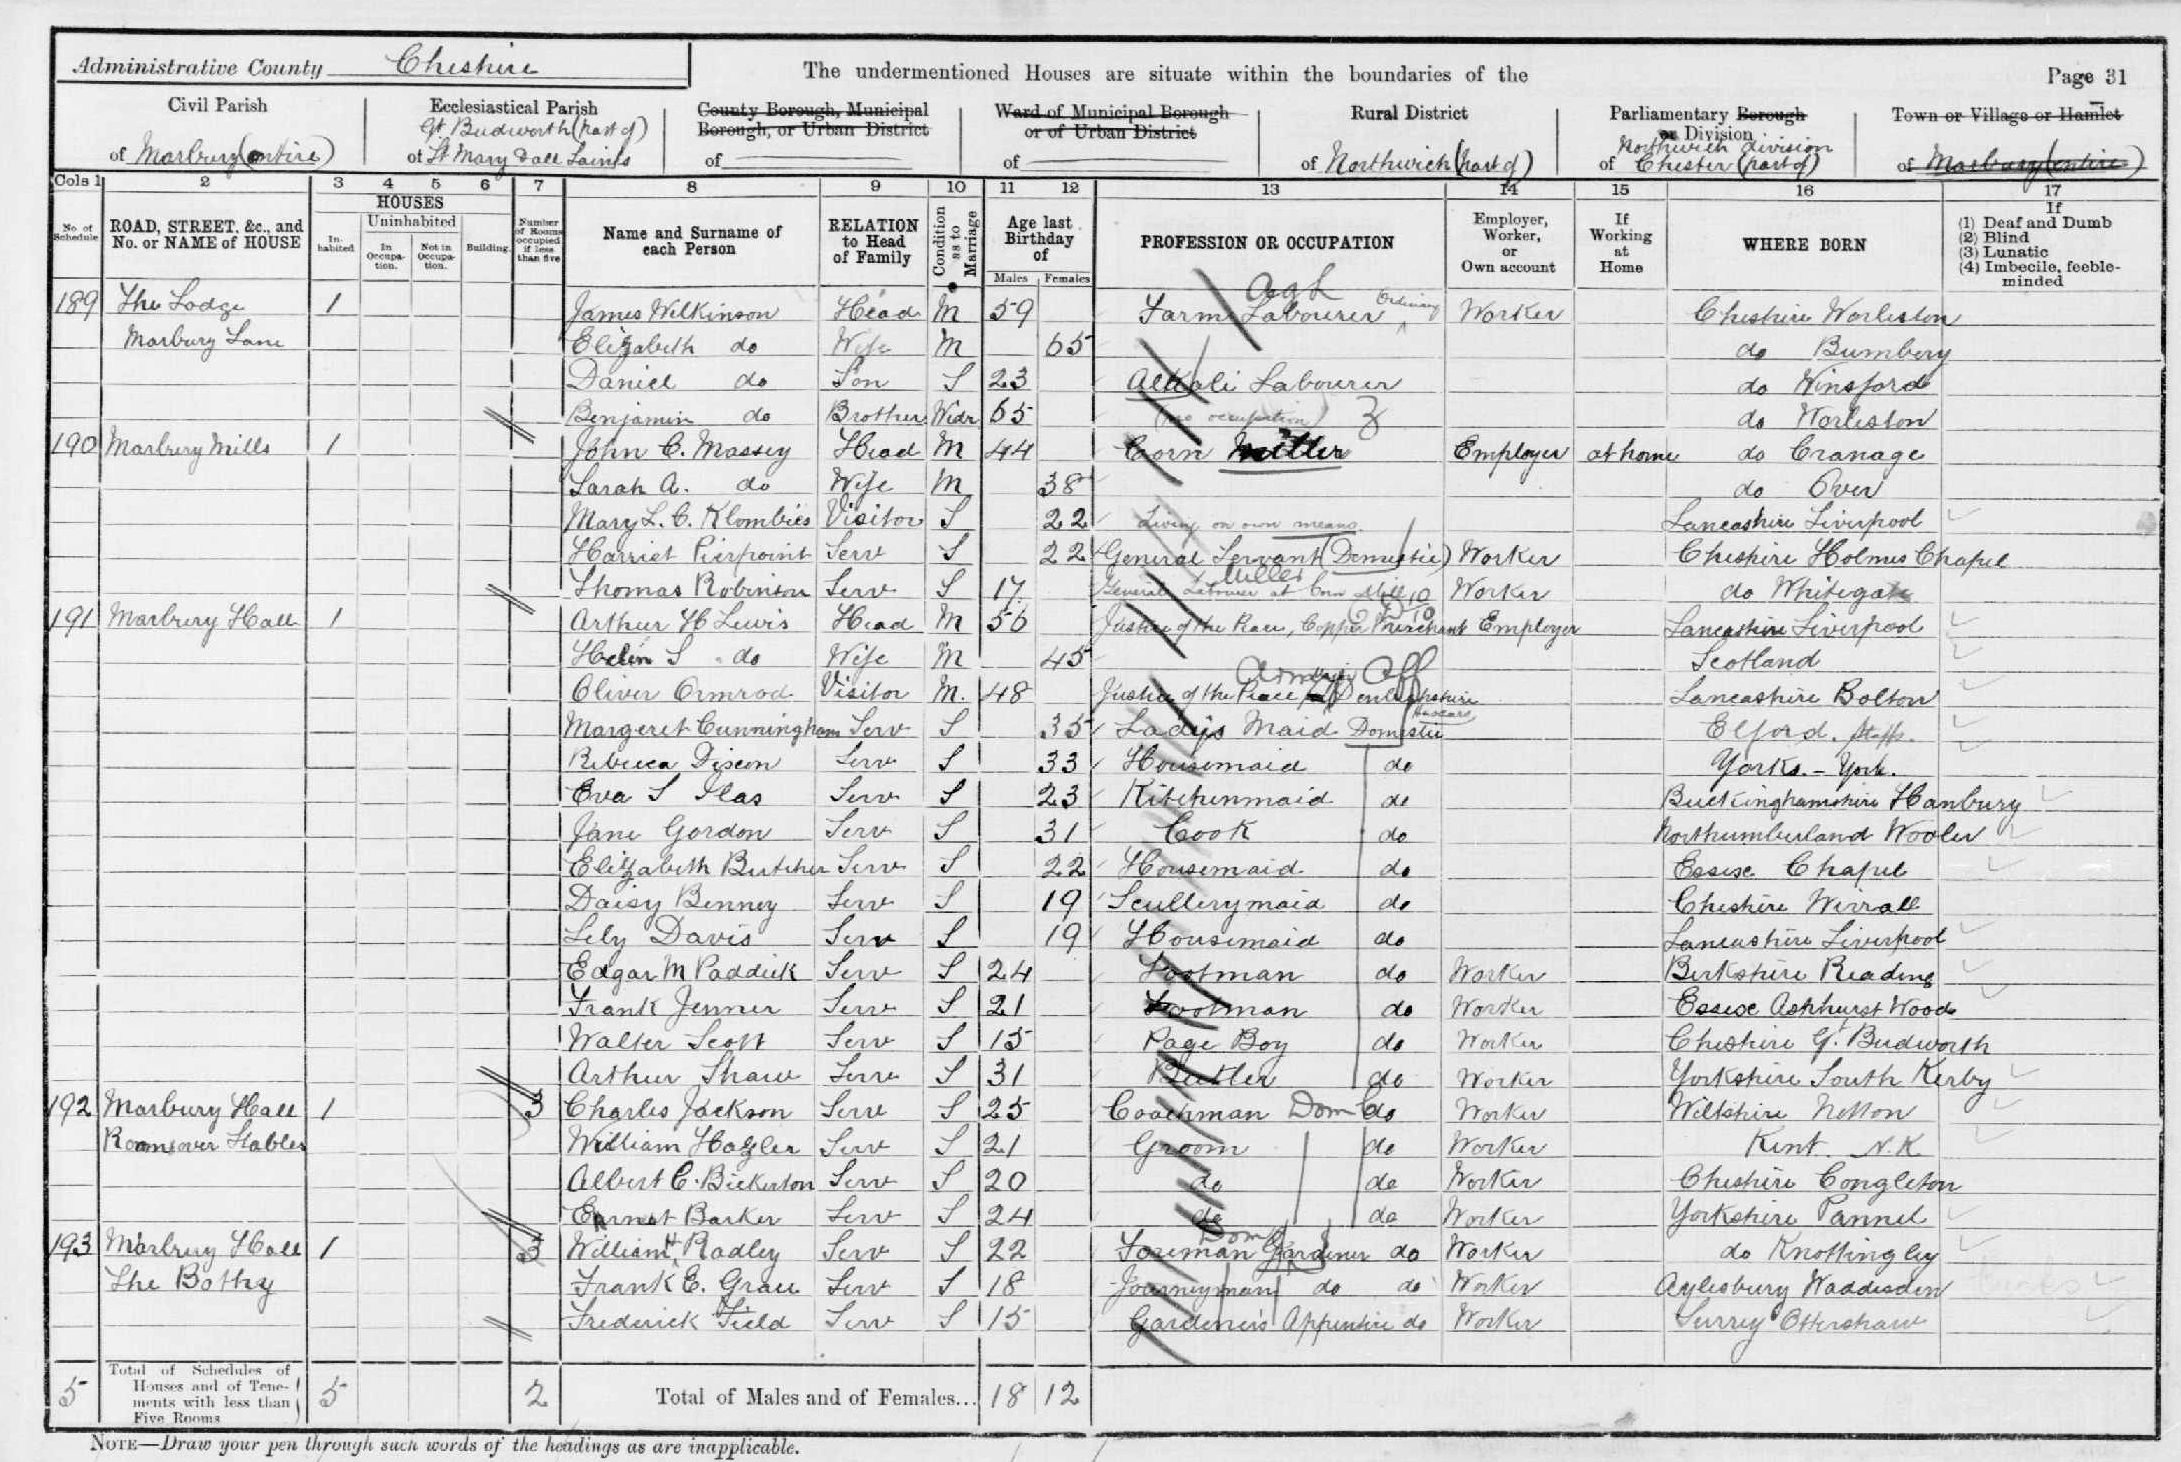 Administrative County Cheshire
The undermentioned Houses are situate within the boundaries of the
Page 31
Civil Parish
of Marbury (entire)
Ecclesiastical Parish
Gt Budworth (part of)
of St Mary & all Saints
County Borough, Municipal
Borough, or Urban District
of
Ward of Municipal Borough
or of Urban District
of
Rural District
of Northwich (part of)
Parliamentary Borough
or Division
Northwich Division
of Chester (part of)
Town or Village or Hamlet
of Marbury (entire)
Cols 1 2 3 4 5 6 7 8 9 10 11 12 13 14 15 16 17
No. of Schedule
ROAD, STREET, &c., and No. or NAME of HOUSE
HOUSES
Inhabited
Uninhabited
In Occupation.
Not in Occupation.
Building.
Number of Rooms occupied if less than five
Name and Surname of each Person
RELATION to Head of Family
Condition as to Marriage
Age last Birthday of
Males Females
PROFESSION OR OCCUPATION
Employer, Worker, or Own account
If Working at Home
WHERE BORN
If
(1) Deaf and Dumb
(2) Blind
(3) Lunatic
(4) Imbecile, feeble-minded
Agl
189 The Lodge 1 James Wilkinson Head M 59 Farm Labourer Ordinary Worker Cheshire Worleston
Marbury Lane Elizabeth do Wife M 65 do Bumbery
Daniel do Son S 23 Alkali Labourer do Winsford
Benjamin do Brother Widr 65 (no occupation) do Worleston
190 Marbury Mills 1 John C. Massey Head M 44 Corn Miller Employer at home do Cranage
Sarah A. do Wife M 38 do Over
Mary L. C. Klombies Visitor S 22 Living on own means Lancashire Liverpool
Harriet Pierpoint Serv S 22 General Servant (Domestic) Worker Cheshire Holmes Chapel
Miller
Thomas Robinson Serv S 17 General Labourer at Corn Mill Worker do Whitegate
191 Marbury Hall 1 Arthur H Lewis Head M 56 Justice of the Peace, Copper Merchant Employer Lancashire Liverpool
Helen S do Wife M 45 Scotland
Oliver Ormrod Visitor M. 48 Justice of the Peace Denbighshire Lancashire Bolton
Margeret Cunningham Serv S 35 Ladys Maid Domestic Elford. Staffs.
Rebecca Dixon Serv S 33 Housemaid do Yorks. - York.
Eva S Ilas Serv S 23 Kitchenmaid do Buckinghamshire Hanbury
Jane Gordon Serv S 31 Cook do Northumberland Wooler
Elizabeth Butcher Serv S 22 Housemaid do Essex Chapel
Daisy Benney Serv S 19 Scullerymaid do Cheshire Wirrall
Lily Davis Serv S 19 Housemaid do Lancashire Liverpool
Edgar M Paddick Serv S 24 Footman do Worker Berkshire Reading
Frank Jenner Serv S 21 Footman do Worker Essex Ashhurst Wood
Walter Scott Serv S 15 Page Boy do Worker Cheshire Gt. Budworth
Arthur Shaw Serv S 31 Butler do Worker Yorkshire South Kerby
192 Marbury Hall 1 3 Charles Jackson Serv S 25 Coachman Dom do Worker Wiltshire Netton
Rooms over Stables William Hozler Serv S 21 Groom do Worker Kent N.K.
Albert C. Bickerton Serv S 20 do do Worker Cheshire Congleton
Earnest Barker Serv S 24 do do Worker Yorkshire Pannel
Dom
193 Marbury Hall 1 3 William H Radley Serv S 22 Foreman Gardener do Worker do Knottingley
The Bothy Frank E. Grace Serv S 18 Journeyman do do Worker Aylesbury Waddesden
Frederick Field Serv S 15 Gardener's Apprentice do Worker Surrey Ottershaw
5 Total of Schedules of Houses and of Tenements with less than Five Rooms 5 2 Total of Males and of Females... 18 12
NOTE—Draw your pen through such words of the headings as are inapplicable.